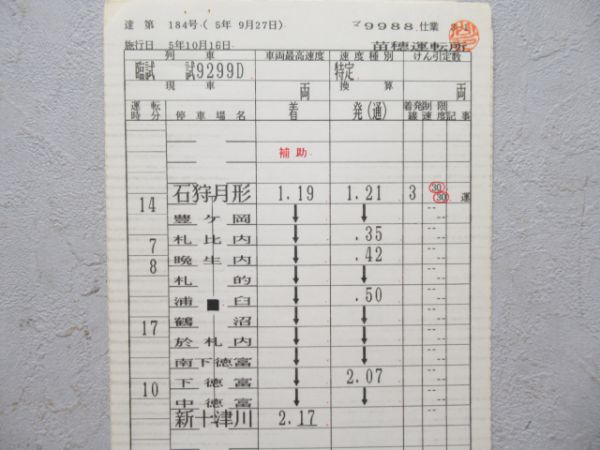 達 第 184号 ( 5年 9月27日) マ9988.仕業
施行日 5年10月16日 苗穂運転所
列 車 車両最高速度 速度種別 けん引定数
臨試 試9299D 特定
現 車 両 換 算 両
運転時分 停車場名 着 発(通) 着発線 制限速度 記事
補助
石狩月形 1.19 1.21 3 30 30 運
14
豊ヶ岡 ↓ ↓
札比内 ↓ .35
7
晩生内 ↓ .42
8
札的 ↓ ↓
浦臼 ↓ .50
鶴沼 ↓ ↓
17
於札内 ↓ ↓
南下徳富 ↓ ↓
下徳富 ↓ 2.07
10
中徳富 ↓ ↓
新十津川 2.17